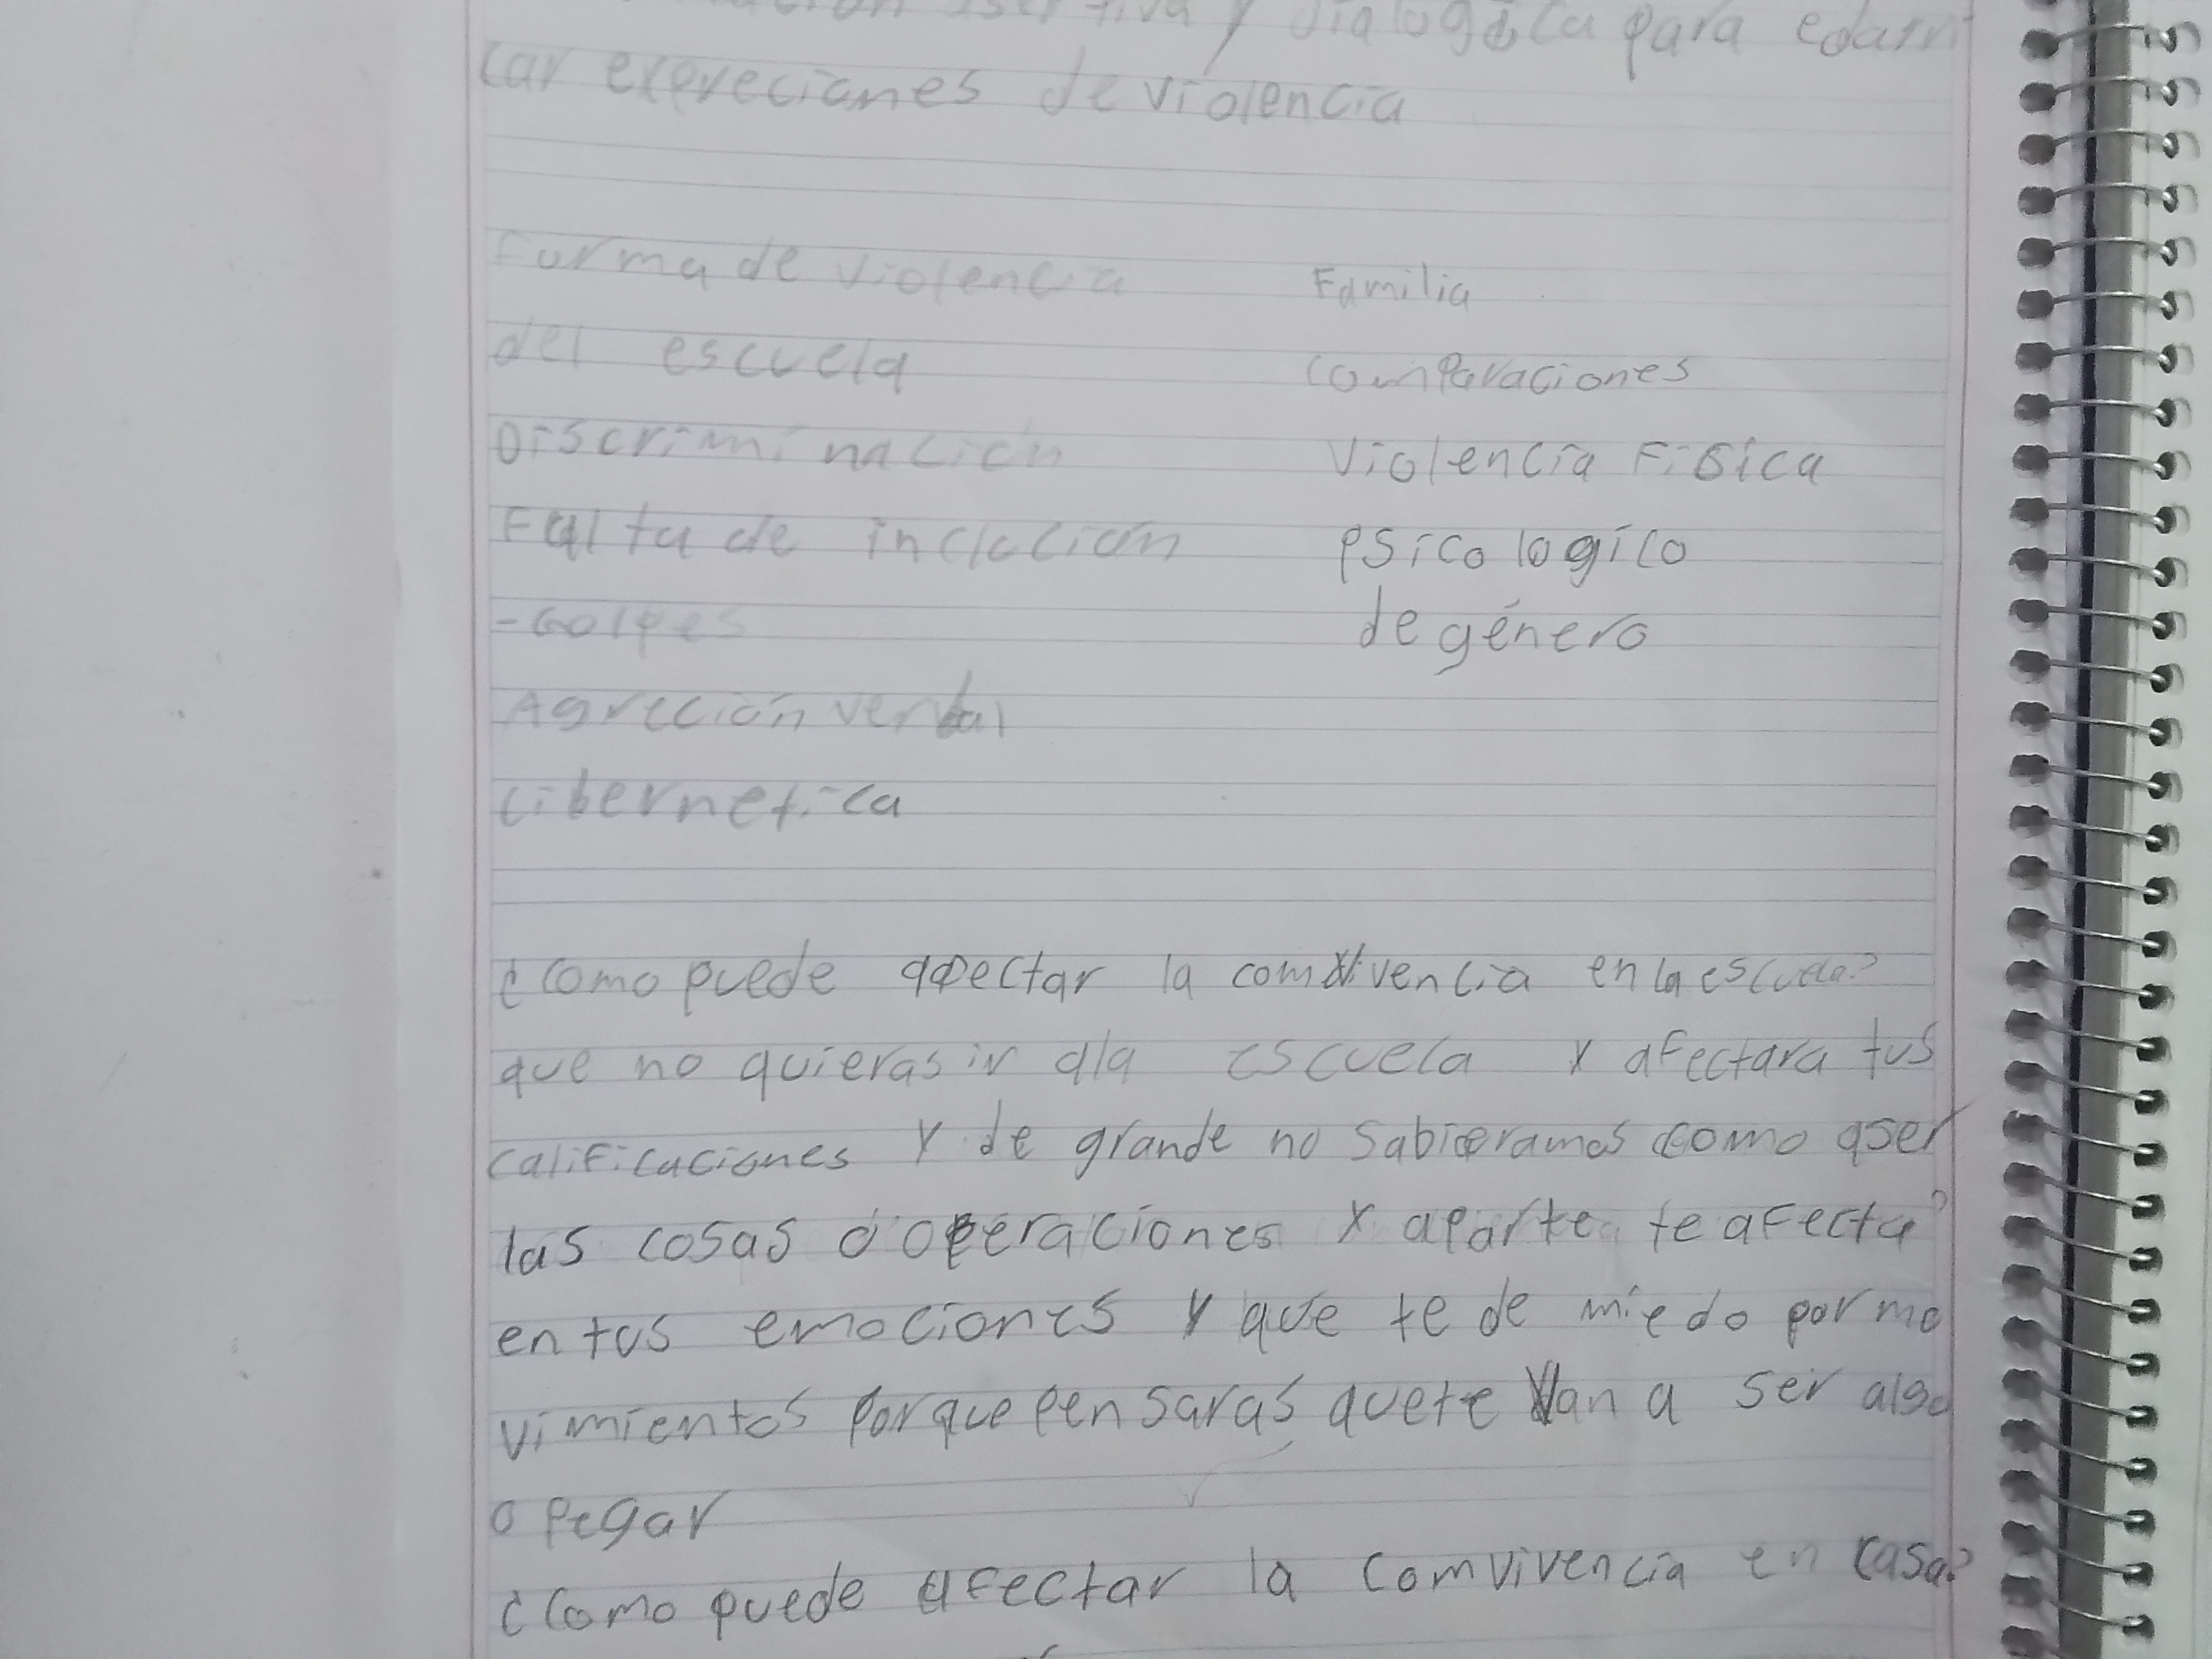 asertiva y dialogica para edarri
car expreciones de violencia
Forma de violencia
del escuela
Discriminación
Falta de inclución
-Golpes
Agrecion verbal
cibernetica
Familia
comparaciones
Violencia Fisica
psicologico
de género
¿como puede afectar la comvivencia en la escuela?
que no quieras ir ala escuela y afectara tus
calificaciones y de grande no sabieramos como aser
las cosas o operaciones y aparte te afecta
en tus emociones y que te de miedo por mo
vimientos porque pensaras que te van a ser algo
o pegar
¿como puede afectar la comvivencia en casa?